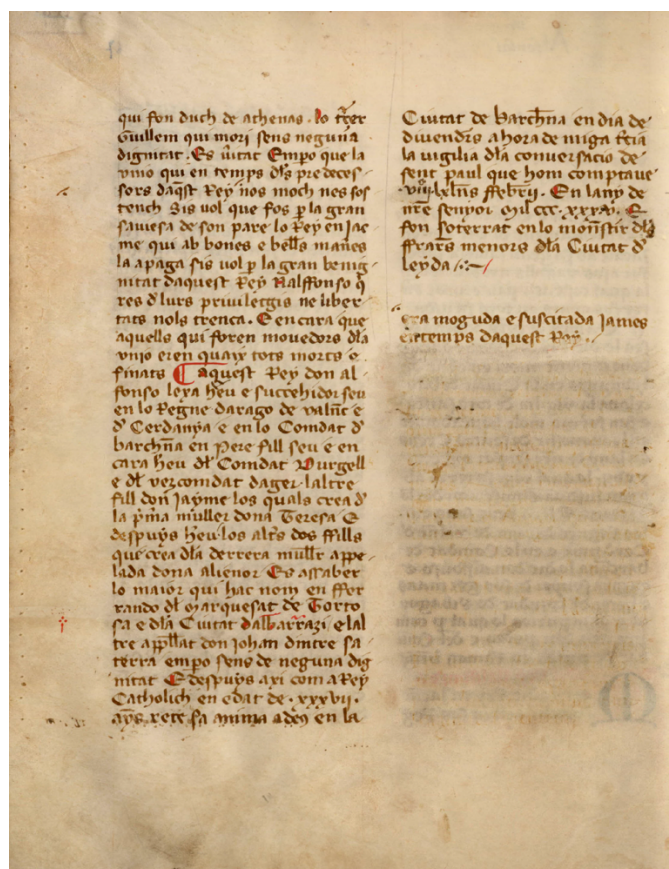 qui fon duch de athenas. lo terr
Guillem qui mori sens neguna
dignitat. Es uitat Empo que la
vnio qui en temps dls predeces
sors daqst Rey nos moch nes sos
tench Sis vol que fos p la gran
sauiesa de son pare lo Rey en Jac
me qui ab bones e bells maneres
la apaga sis uol p la gran benig
nitat daquest Rey Nalffonso q
res d lurs priuiletgis ne liber
tats nols trenca. E encara que
aquells qui foren mouedors dla
vnio eren quaix tots morts e
finats Aquest Rey don al
fonso lexa heu e succehidor seu
en lo Regne darago de valnc e
d Cerdanya e en lo Comdat d
barchna en Pere fill seu e en
cara heu dl Comdat Durgell
e dl vezcomdat dager laltre
fill don Jayme los quals crea d
la pma muller dona Teresa E
despuys heu los alts dos ffills
que crea dla derrera mullr appe
lada dona alienor Es assaber
lo maior qui hac nom en ffer
rando dl Marquesat de Torto
sa e dla Ciutat dalbarrazi e lal
tre appllat don Johan dintre sa
terra empo sens de neguna dig
nitat E despuys axi com a Rey
Catholich en edat de .xxxvii.
anys rete sa anima a deu en la
Ciutat de barchna en dia de
diuendrs a hora de miga tcia
la vigilia dla conuersacio de
sent paul que hom comptaue
.viiij. klns ffebrij. En lany de
nre senyor Mil ccc. xxxv. E
fon soterrat en lo monstir dls
ffrars menors dla Ciutat d
leyda
era moguda e suscitada James
en temps daquest Rey.